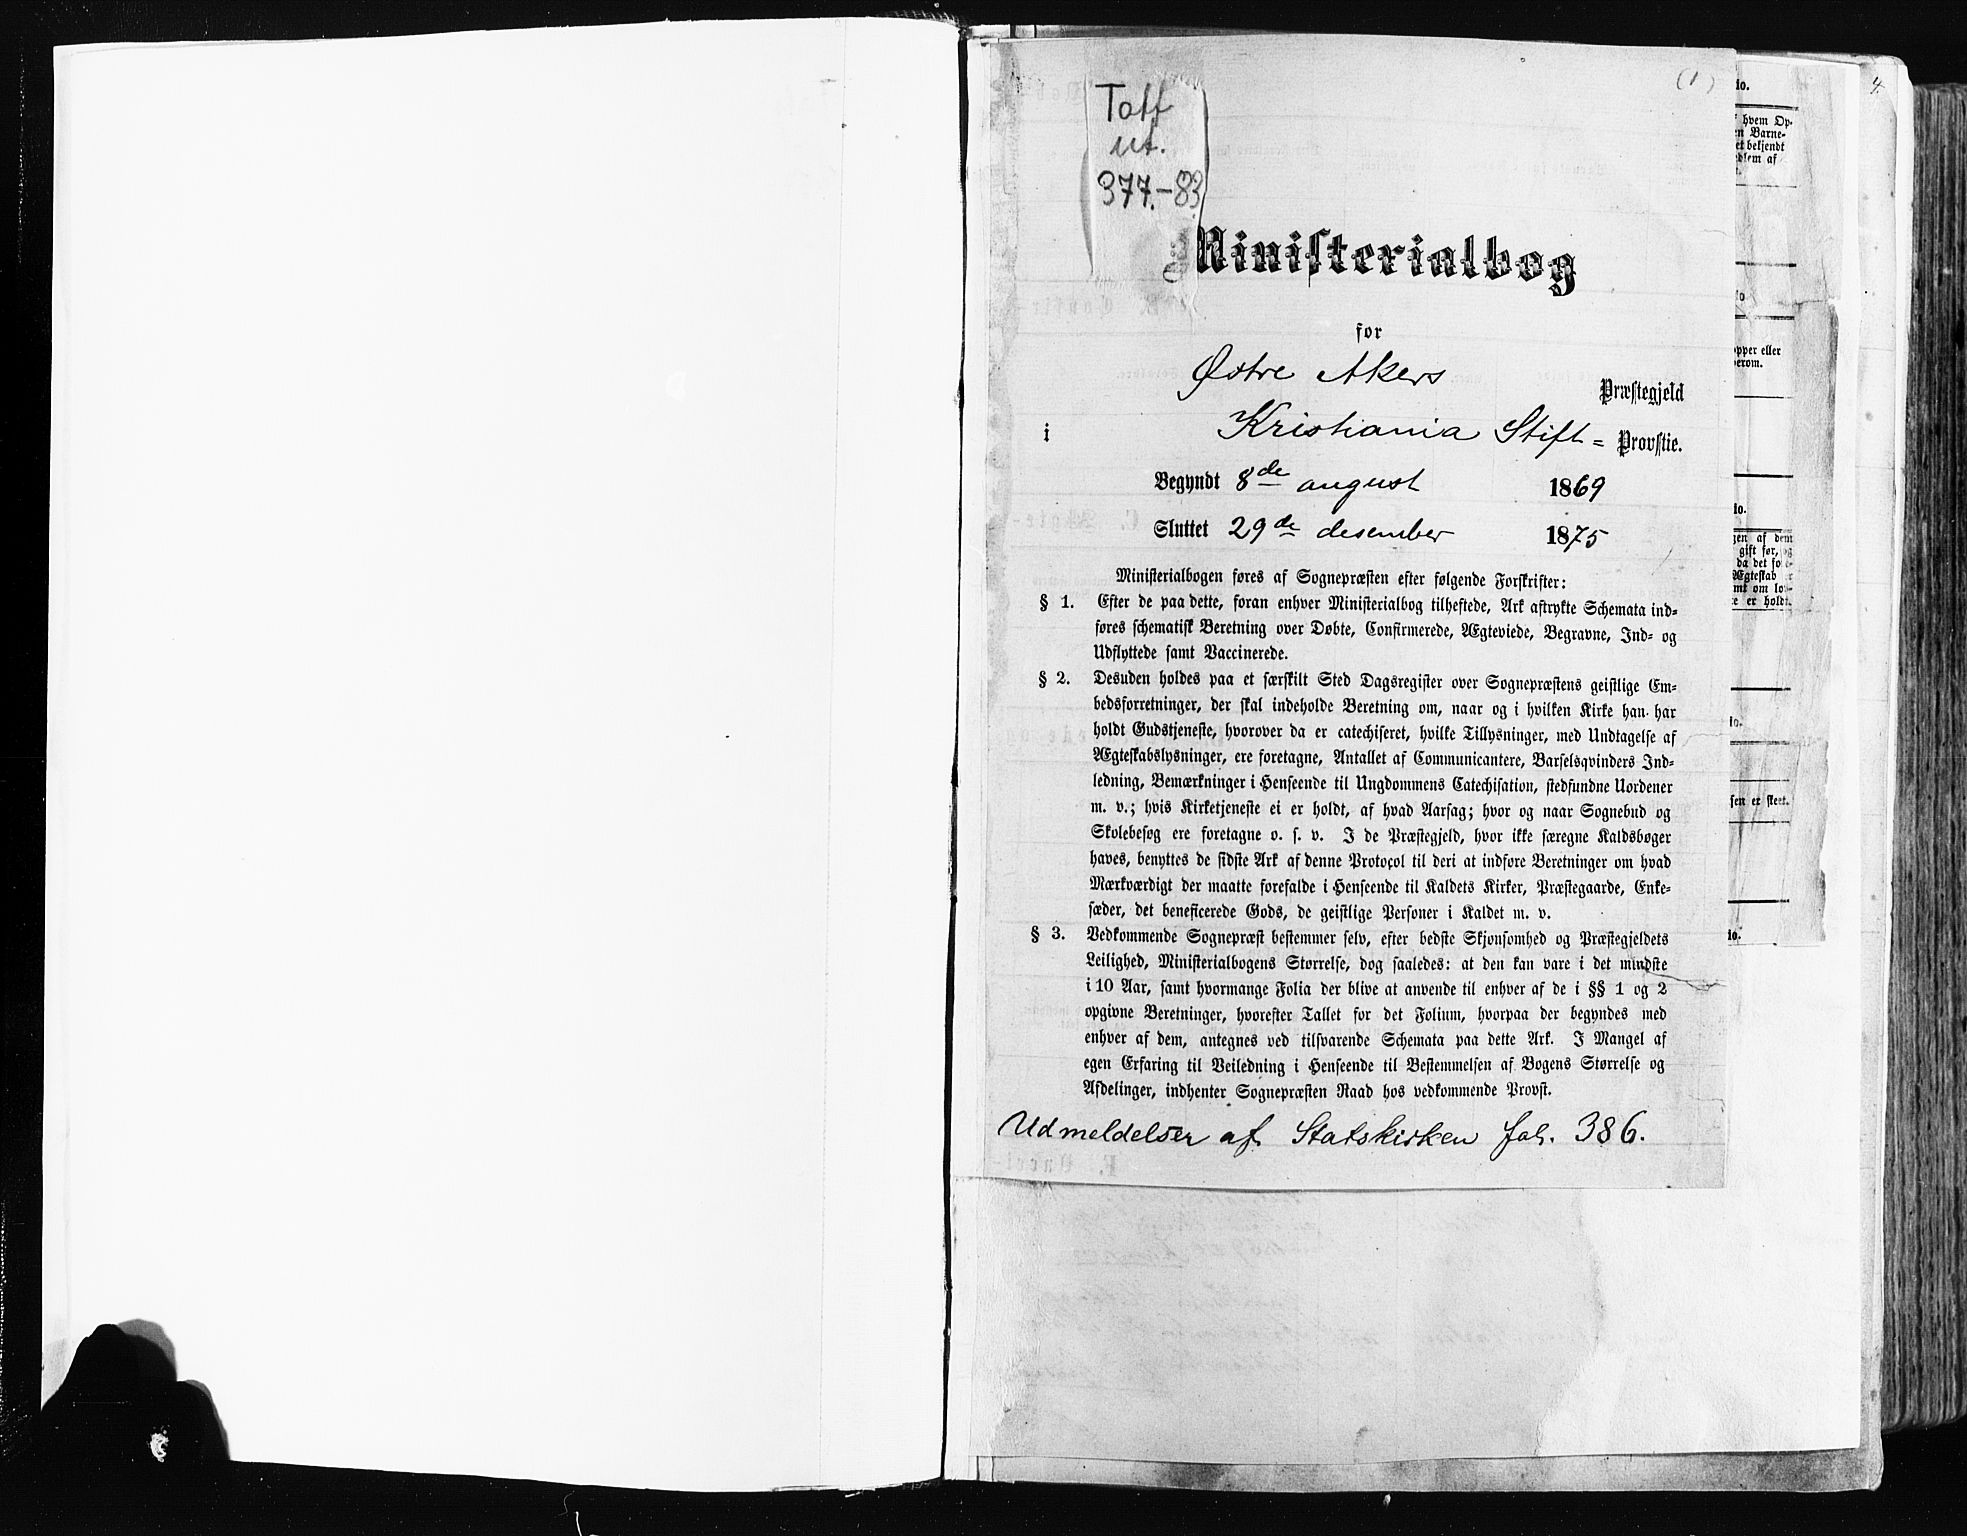 (1)
4.
Tatt
ut.
377.-83
Ministerialbog
for
Østre Akers
Præstegjeld
i Kristiania Stift = Provstie.
Begyndt 8de august 1869
Sluttet 29de desember 1875
Ministerialbogen føres af Sognepræsten efter følgende Forskrifter:
§ 1. Efter de paa dette, foran enhver Ministerialbog tilheftede, Ark aftrykte Schemata ind-
føres schematisk Beretning over Døbte, Confirmerede, Ægteviede, Begravne, Ind- og
Udflyttede samt Vaccinerede.
§ 2. Desuden holdes paa et særskilt Sted Dagsregister over Sognepræstens geistlige Em-
bedsforretninger, der skal indeholde Beretning om, naar og i hvilken Kirke han har
holdt Gudstjeneste, hvorover da er catechiseret, hvilke Tillysninger, med Undtagelse af
Ægteskabslysninger, ere foretagne, Antallet af Communicantere, Barselqvinders Ind-
ledning, Bemærkninger i Henseende til Ungdommens Catechisation, stedfundne Uordener
m. v.; hvis Kirketjeneste ei er holdt, af hvad Aarsag; hvor og naar Sognebud og
Skolebesøg ere foretagne o. s. v. I de Præstegjeld, hvor ikke særegne Kaldsbøger
haves, benyttes de sidste Ark af denne Protocol til deri at indføre Beretninger om hvad
Mærkværdigt der maatte forefalde i Henseende til Kaldets Kirker, Præstegaarde, Enke-
sæder, det beneficerede Gods, de geistlige Personer i Kaldet m. v.
§ 3. Vedkommende Sognepræst bestemmer selv, efter bedste Skjønsomhed og Præstegjeldets
Leilighed, Ministerialbogens Størrelse, dog saaledes: at den kan vare i det mindste
i 10 Aar, samt hvormange Folia der blive at anvende til enhver af de i §§ 1 og 2
opgivne Beretninger, hvorefter Tallet for det Folium, hvorpaa der begyndes med
enhver af dem, antegnes ved tilsvarende Schemata paa dette Ark. I Mangel af
egen Erfaring til Veiledning i Henseende til Bestemmelsen af Bogens Størrelse og
Afdelinger, indhenter Sognepræsten Raad hos vedkommende Provst.
Udmeldelser af Statskirken fol. 386.